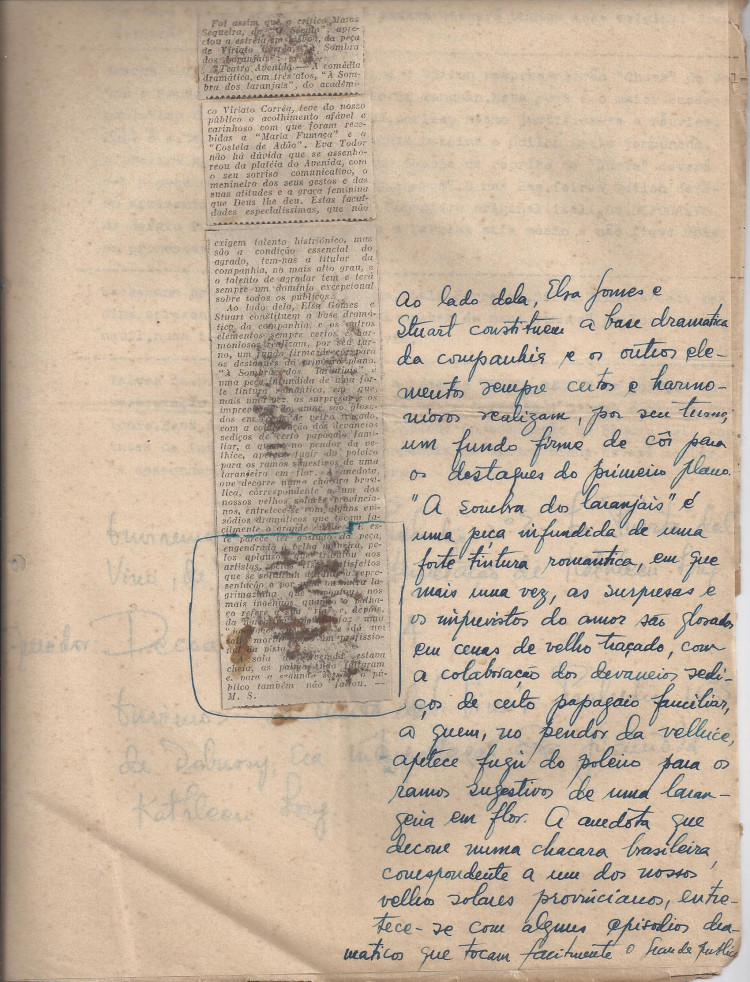 Foi assim que o crítico Matos
Sequeira, de "O Século", apre-
ciou a estréia em Lisboa, da peça
de Viriato Corrêa, "A Sombra
dos Laranjais":
"Teatro Avenida — A comédia
dramática, em três atos, "A Som-
bra dos laranjais", do acadêmi-
co Viriato Corrêa, teve do nosso
público o acolhimento afável e
carinhoso com que foram rece-
bidas a "Maria Fumaça" e a
"Costela de Adão". Eva Todor
não há dúvida que se assenho-
reou da platéia do Avenida, com
o seu sorriso comunicativo, o
meineiro dos seus gestos e das
suas atitudes e a graça feminina
que Deus lhe deu. Estas facul-
dades especialíssimas, que não
exigem talento histriônico, mas
são a condição essencial do
agrado, tem-nas a titular da
companhia, no mais alto grau, e
o talento de agradar tem e terá
sempre um domínio excepcional
sobre todos os públicos.
Ao lado dela, Elsa Gomes e
Stuart constituem a base dramá-
tica da companhia, e os outros
elementos sempre certos e har-
moniosos realizam, por seu tur-
no, um fundo firme de côr para
os destaques do primeiro plano.
"A Sombra dos laranjais" é
uma peça infundida de uma for-
te tintura romântica, em que,
mais uma vez, as surpresas e os
imprevistos do amor são glosa-
dos em cenas de velho traçado,
com a colaboração dos devaneios
sediços de certo papagaio fami-
liar, a quem, no pendor da ve-
lhice, apetece fugir do poleiro
para os ramos sugestivos de uma
laranjeira em flor. A anedota,
que decorre numa chácara brasi-
lica, correspondente a um dos
nossos velhos solares provincia-
nos, entretece-se com alguns epi-
sódios dramáticos que tocam fa-
cilmente o grande público, e
este parece ter gostado da peça,
engendrada à velha maneira, pe-
los aplausos
artistas, satisfeitos
que se
sentação e por
grimazinha que nos
mais ingênuos quando o palha-
ço refere
sala estava
cheia, as palmas não faltaram
e, para o segundo o pú-
blico também não faltou. —
M. S.
Ao lado dela, Elsa Gomes e
Stuart constituem a base dramatica
da companhia e os outros ele-
mentos sempre certos e harmo-
niosos realizam, por seu turno,
um fundo firme de côr para
os destaques do primeiro plano.
"A sombra dos laranjais" é
uma peca infundida de uma
forte tintura romantica, em que
mais uma vez, as surpresas e
os imprevistos do amor são glosados
em cenas de velho traçado, com
a colaboração dos devaneios sedi-
ços de certo papagaio familiar,
a quem, no pendor da velhice,
apetece fugir do poleiro para os
ramos sugestivos de uma laran-
geira em flor. A anedota que
decorre numa chacara brasileira,
correspondente a um dos nossos
velhos solares provincianos, entre-
tece-se com alguns episodios dra-
maticos que tocam facilmente o grande publico